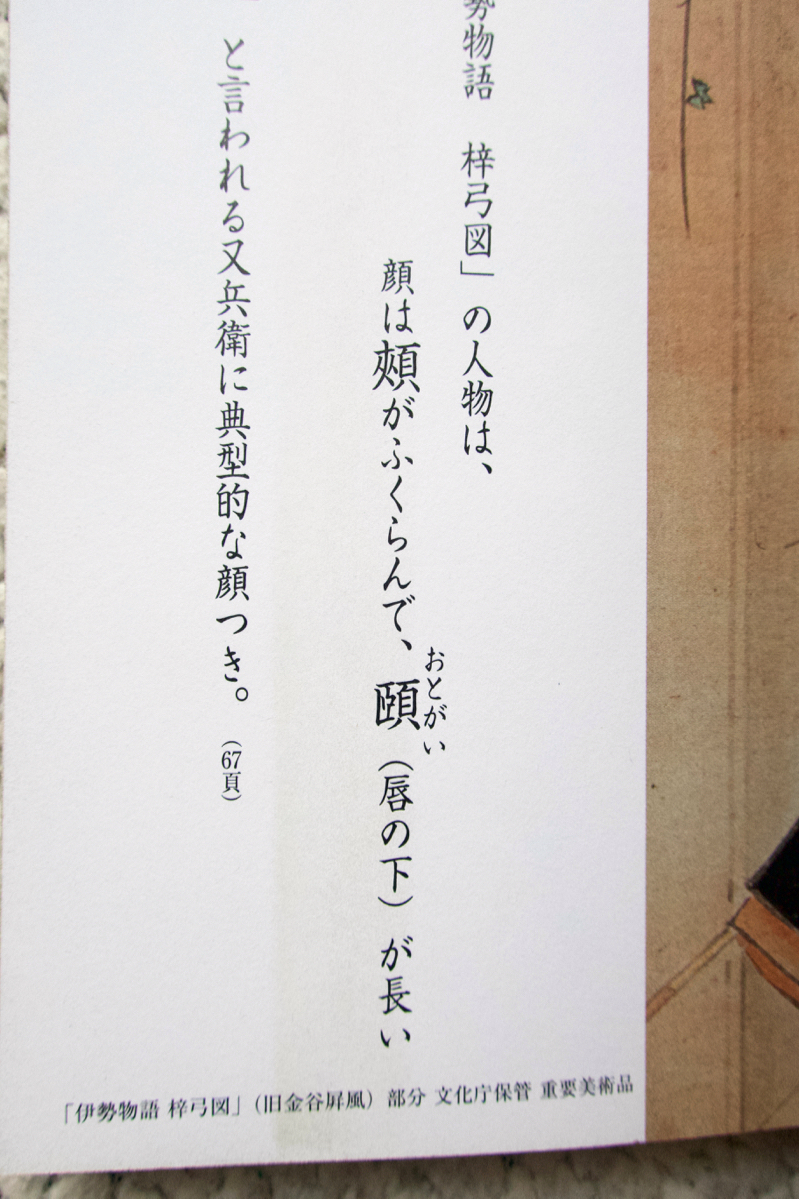 勢物語 梓弓図」の人物は、
顔は頰がふくらんで、頤（唇の下）が長い
おとがい
と言われる又兵衛に典型的な顔つき。（67頁）
「伊勢物語 梓弓図」（旧金谷屏風）部分 文化庁保管 重要美術品